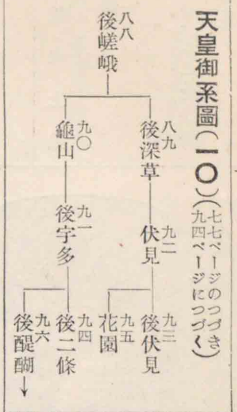 天皇御系圖(一〇)(七七ページのつづき
九四ページにつづく)
八八
後嵯峨
八九
後深草
九二
伏見
九三
後伏見
九五
花園
九〇
龜山
九一
後宇多
九四
後二條
九六
後醍醐